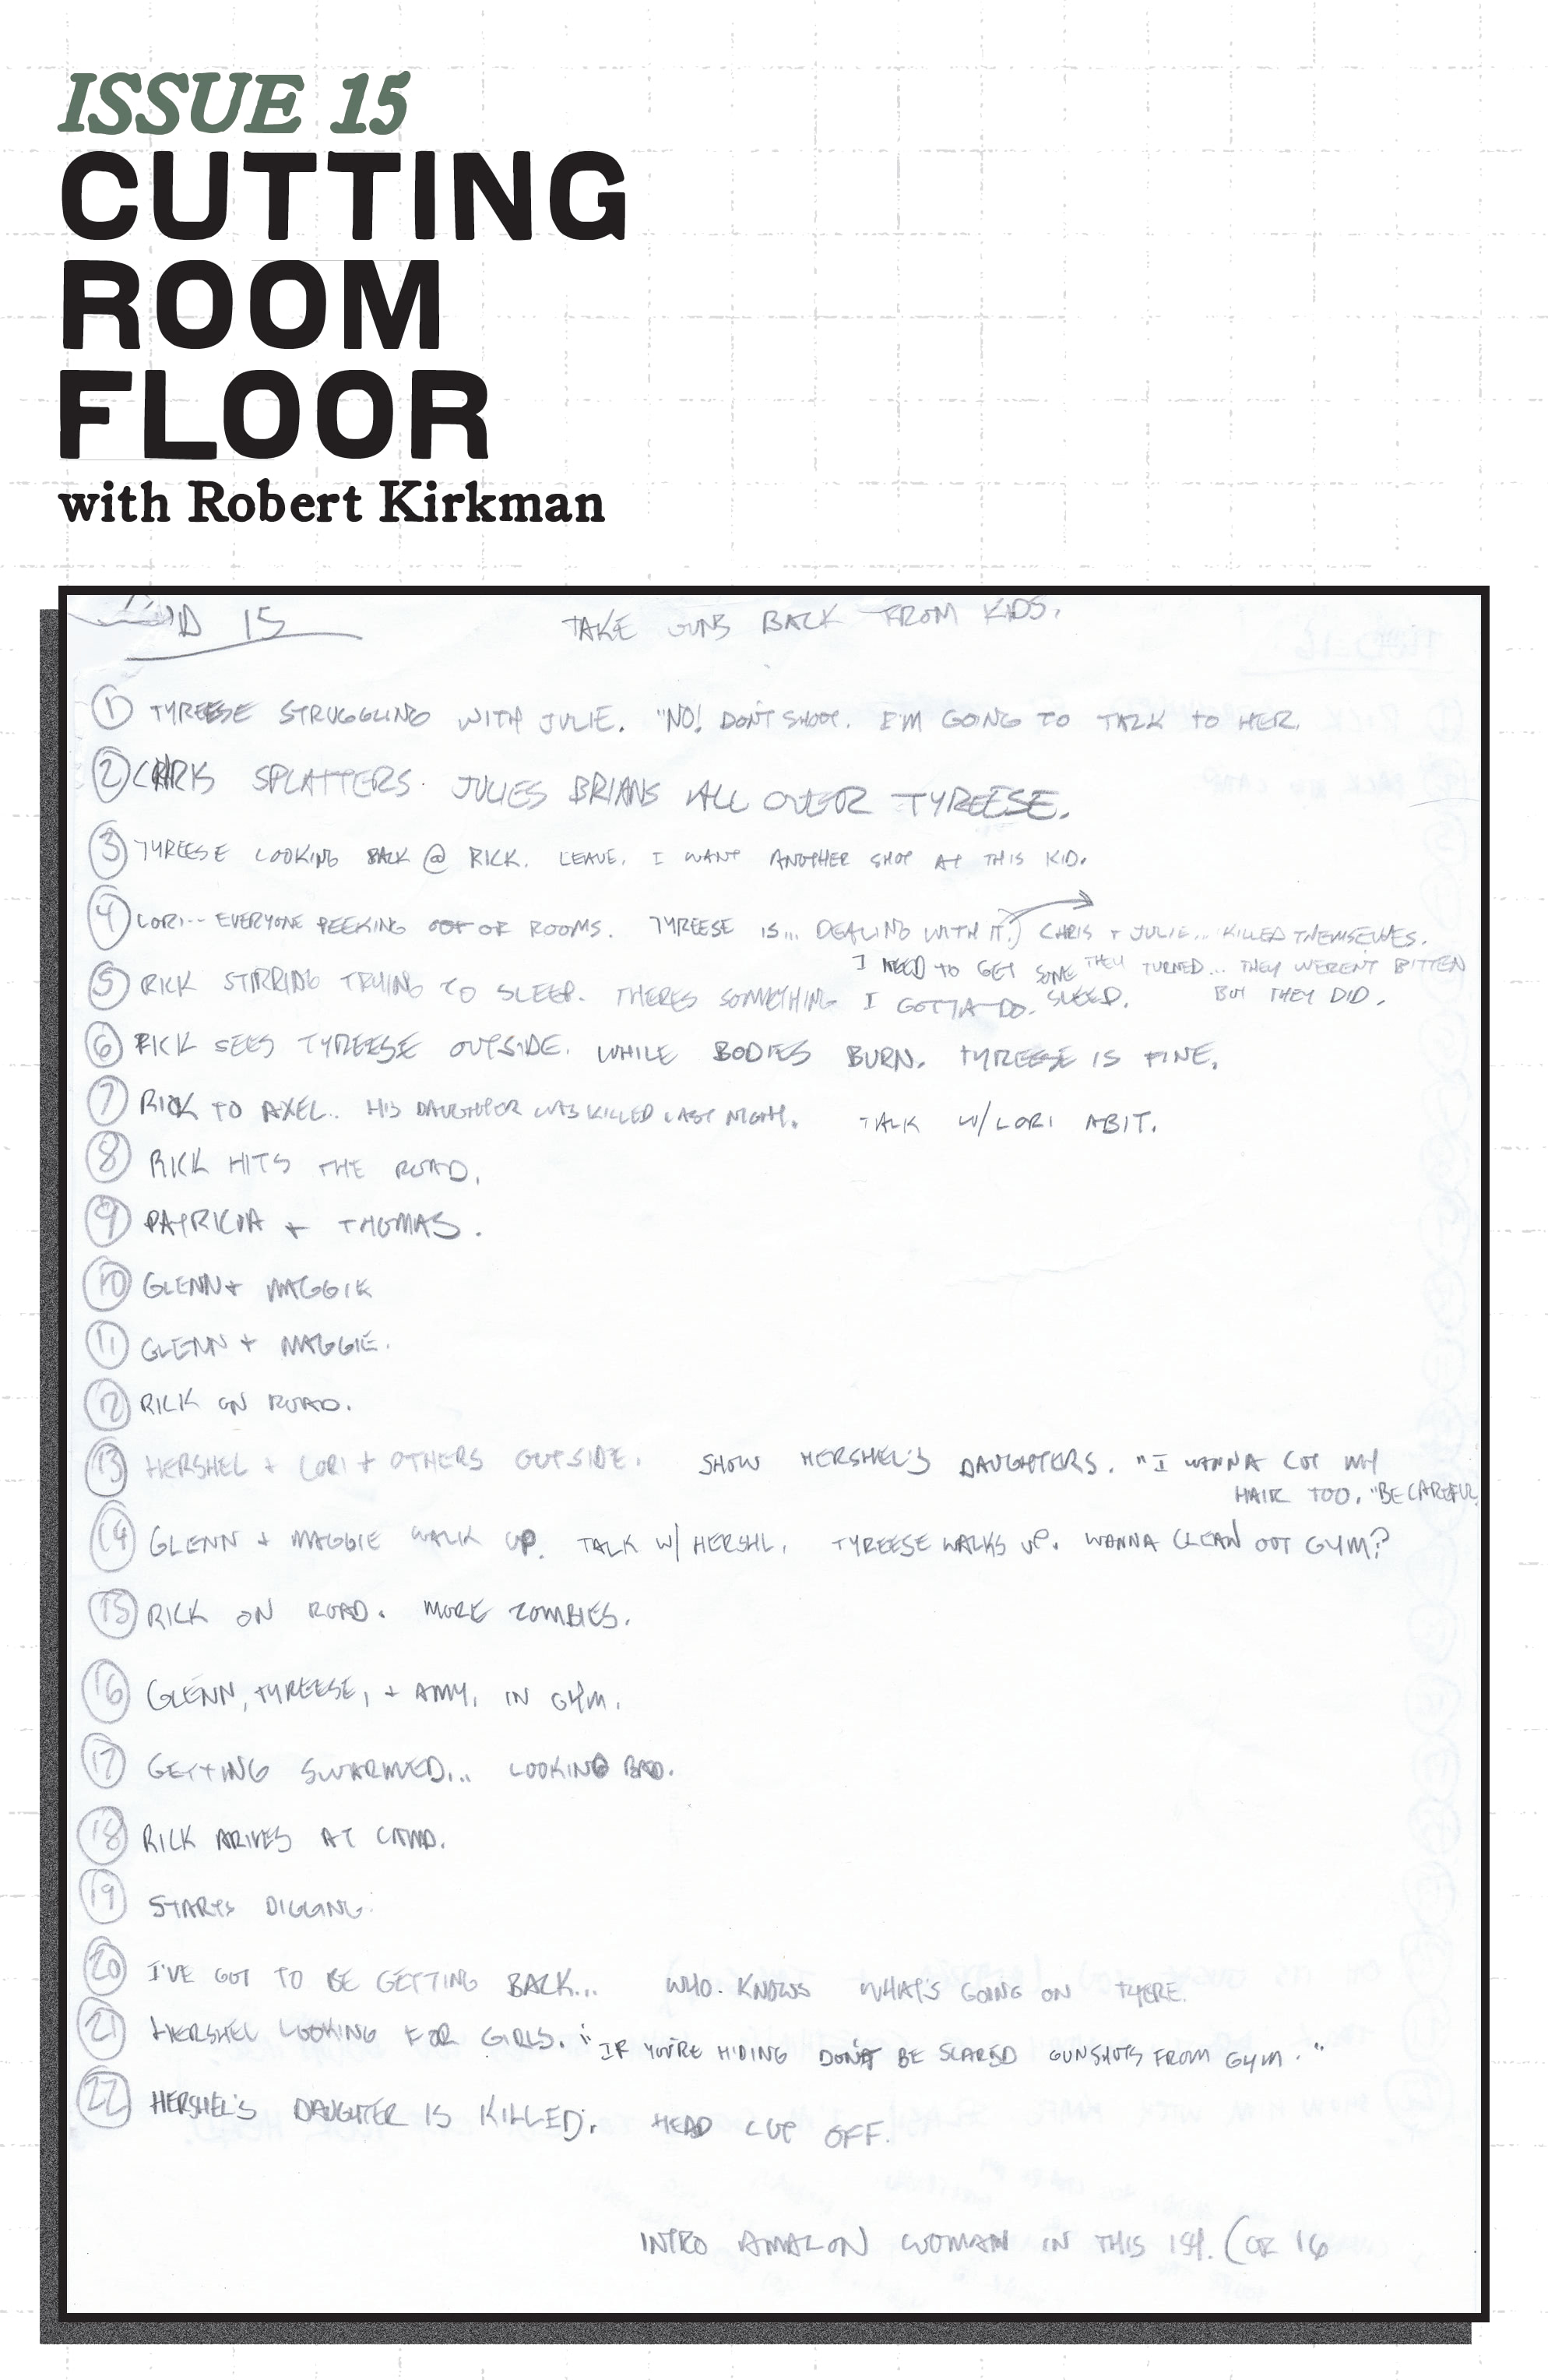 ISSUE 15
CUTTING
ROOM
FLOOR
with Robert Kirkman
15 TAKE GUNS BACK FROM KIDS.
1 TYREESE STRUGGLING WITH JULIE. "NO! DON'T SHOOT. I'M GOING TO TALK TO HER.
2 CHRIS SPLATTERS JULIES BRIANS ALL OVER TYREESE.
3 TYREESE LOOKING BACK @ RICK. LEAVE. I WANT ANOTHER SHOT AT THIS KID.
4 LORI... EVERYONE PEEKING OUT OF ROOMS. TYREESE IS... DEALING WITH IT. CHRIS + JULIE... KILLED THEMSELVES.
THEY TURNED... THEY WEREN'T BITTEN
BUT THEY DID.
I NEED TO GET SOME
SLEEP.
5 RICK STIRRING TRYING TO SLEEP. THERES SOMETHING I GOTTA DO.
6 RICK SEES TYREESE OUTSIDE. WHILE BODIES BURN. TYREESE IS FINE.
7 RICK TO AXEL.. HIS DAUGHTER WAS KILLED LAST NIGHT. TALK W/ LORI ABIT.
8 RICK HITS THE ROAD.
9 PATRICIA + THOMAS.
10 GLENN + MAGGIE
11 GLENN + MAGGIE.
12 RICK ON ROAD.
13 HERSHEL + LORI + OTHERS OUTSIDE. SHOW HERSHEL'S DAUGHTERS. "I WANNA CUT MY
HAIR TOO. "BE CAREFUL
14 GLENN + MAGGIE WALK UP. TALK W/ HERSHL. TYREESE WALKS UP. WANNA CLEAN OUT GYM?
15 RICK ON ROAD. MORE ZOMBIES.
16 GLENN, TYREESE, + AMY, IN GYM.
17 GETTING SWARMED... LOOKING BAD.
18 RICK ARIVES AT CAMP.
19 STARTS DIGGING.
20 I'VE GOT TO BE GETTING BACK... WHO KNOWS WHAT'S GOING ON THERE.
21 HERSHEL LOOKING FOR GIRLS. "IF YOU'RE HIDING DON'T BE SCARED GUNSHOTS FROM GYM."
22 HERSHEL'S DAUGHTER IS KILLED. HEAD CUT OFF.
INTRO AMAZON WOMAN IN THIS ISH. (OR 16